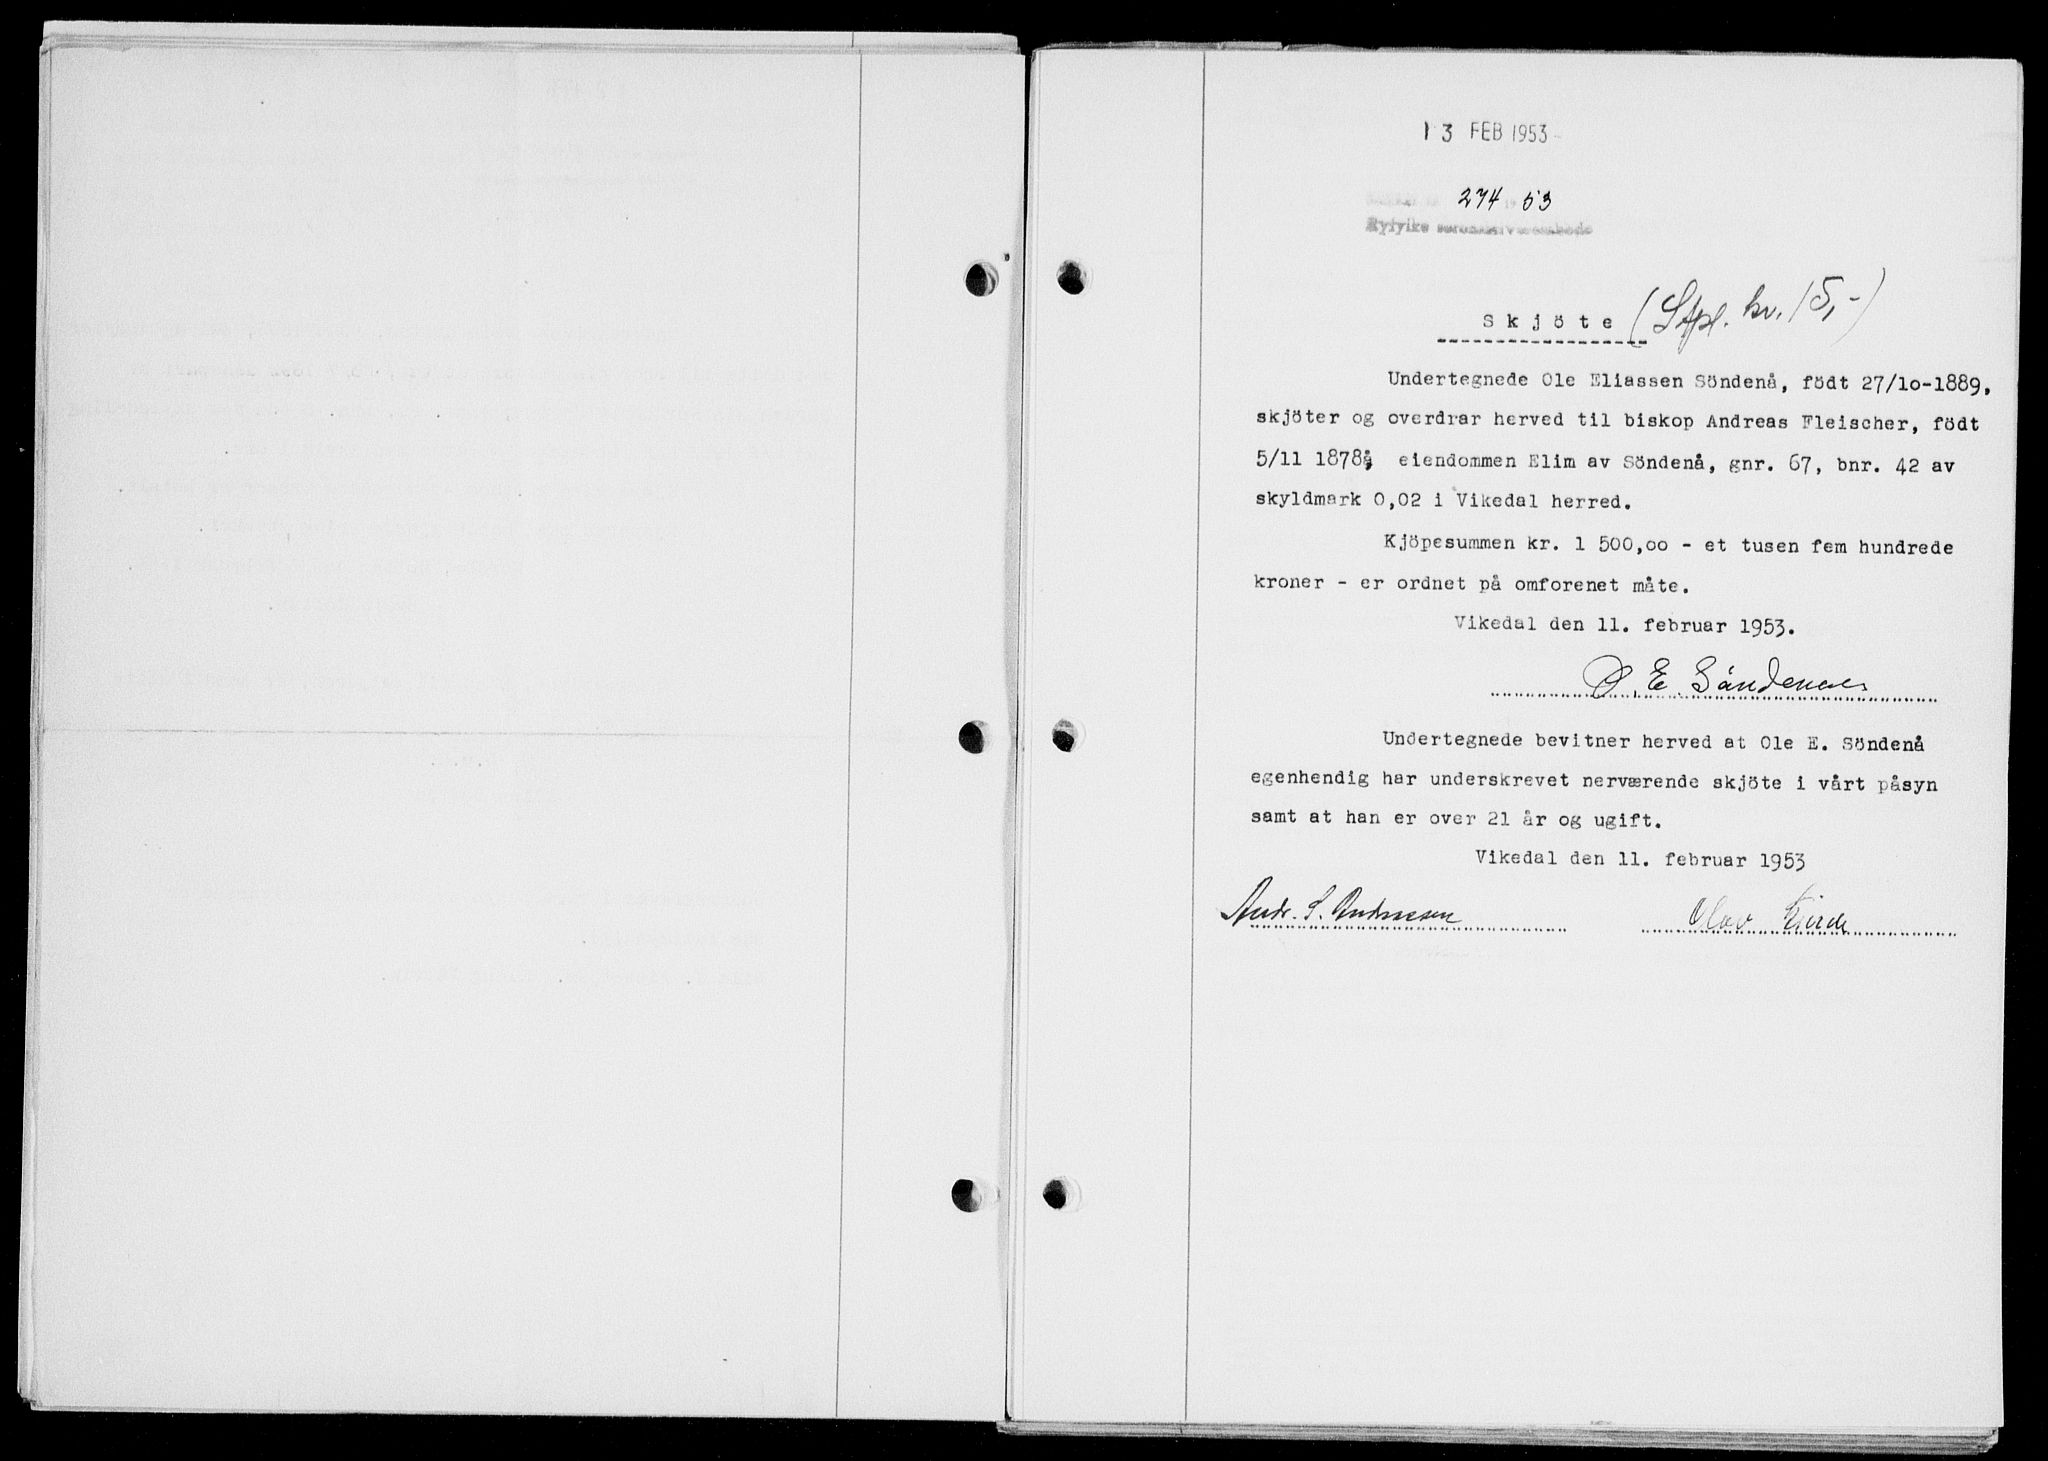 13 FEB 1953
274 53
Ryfylke sorenskriverembede
Skjöte (Stpl. kr. 15,-)
Undertegnede Ole Eliassen Söndenå, födt 27/10-1889,
skjöter og overdrar herved til biskop Andreas Fleischer, födt
5/11 1878, eiendommen Elim av Söndenå, gnr. 67, bnr. 42 av
skyldmark 0,02 i Vikedal herred.
Kjöpesummen kr. 1 500,oo - et tusen fem hundrede
kroner - er ordnet på omforenet måte.
Vikedal den 11. februar 1953.
O. E. Söndenaa
Undertegnede bevitner herved at Ole E. Söndenå
egenhendig har underskrevet nerværende skjöte i vårt påsyn
samt at han er over 21 år og ugift.
Vikedal den 11. februar 1953
Andr. S. Andreassen Olav